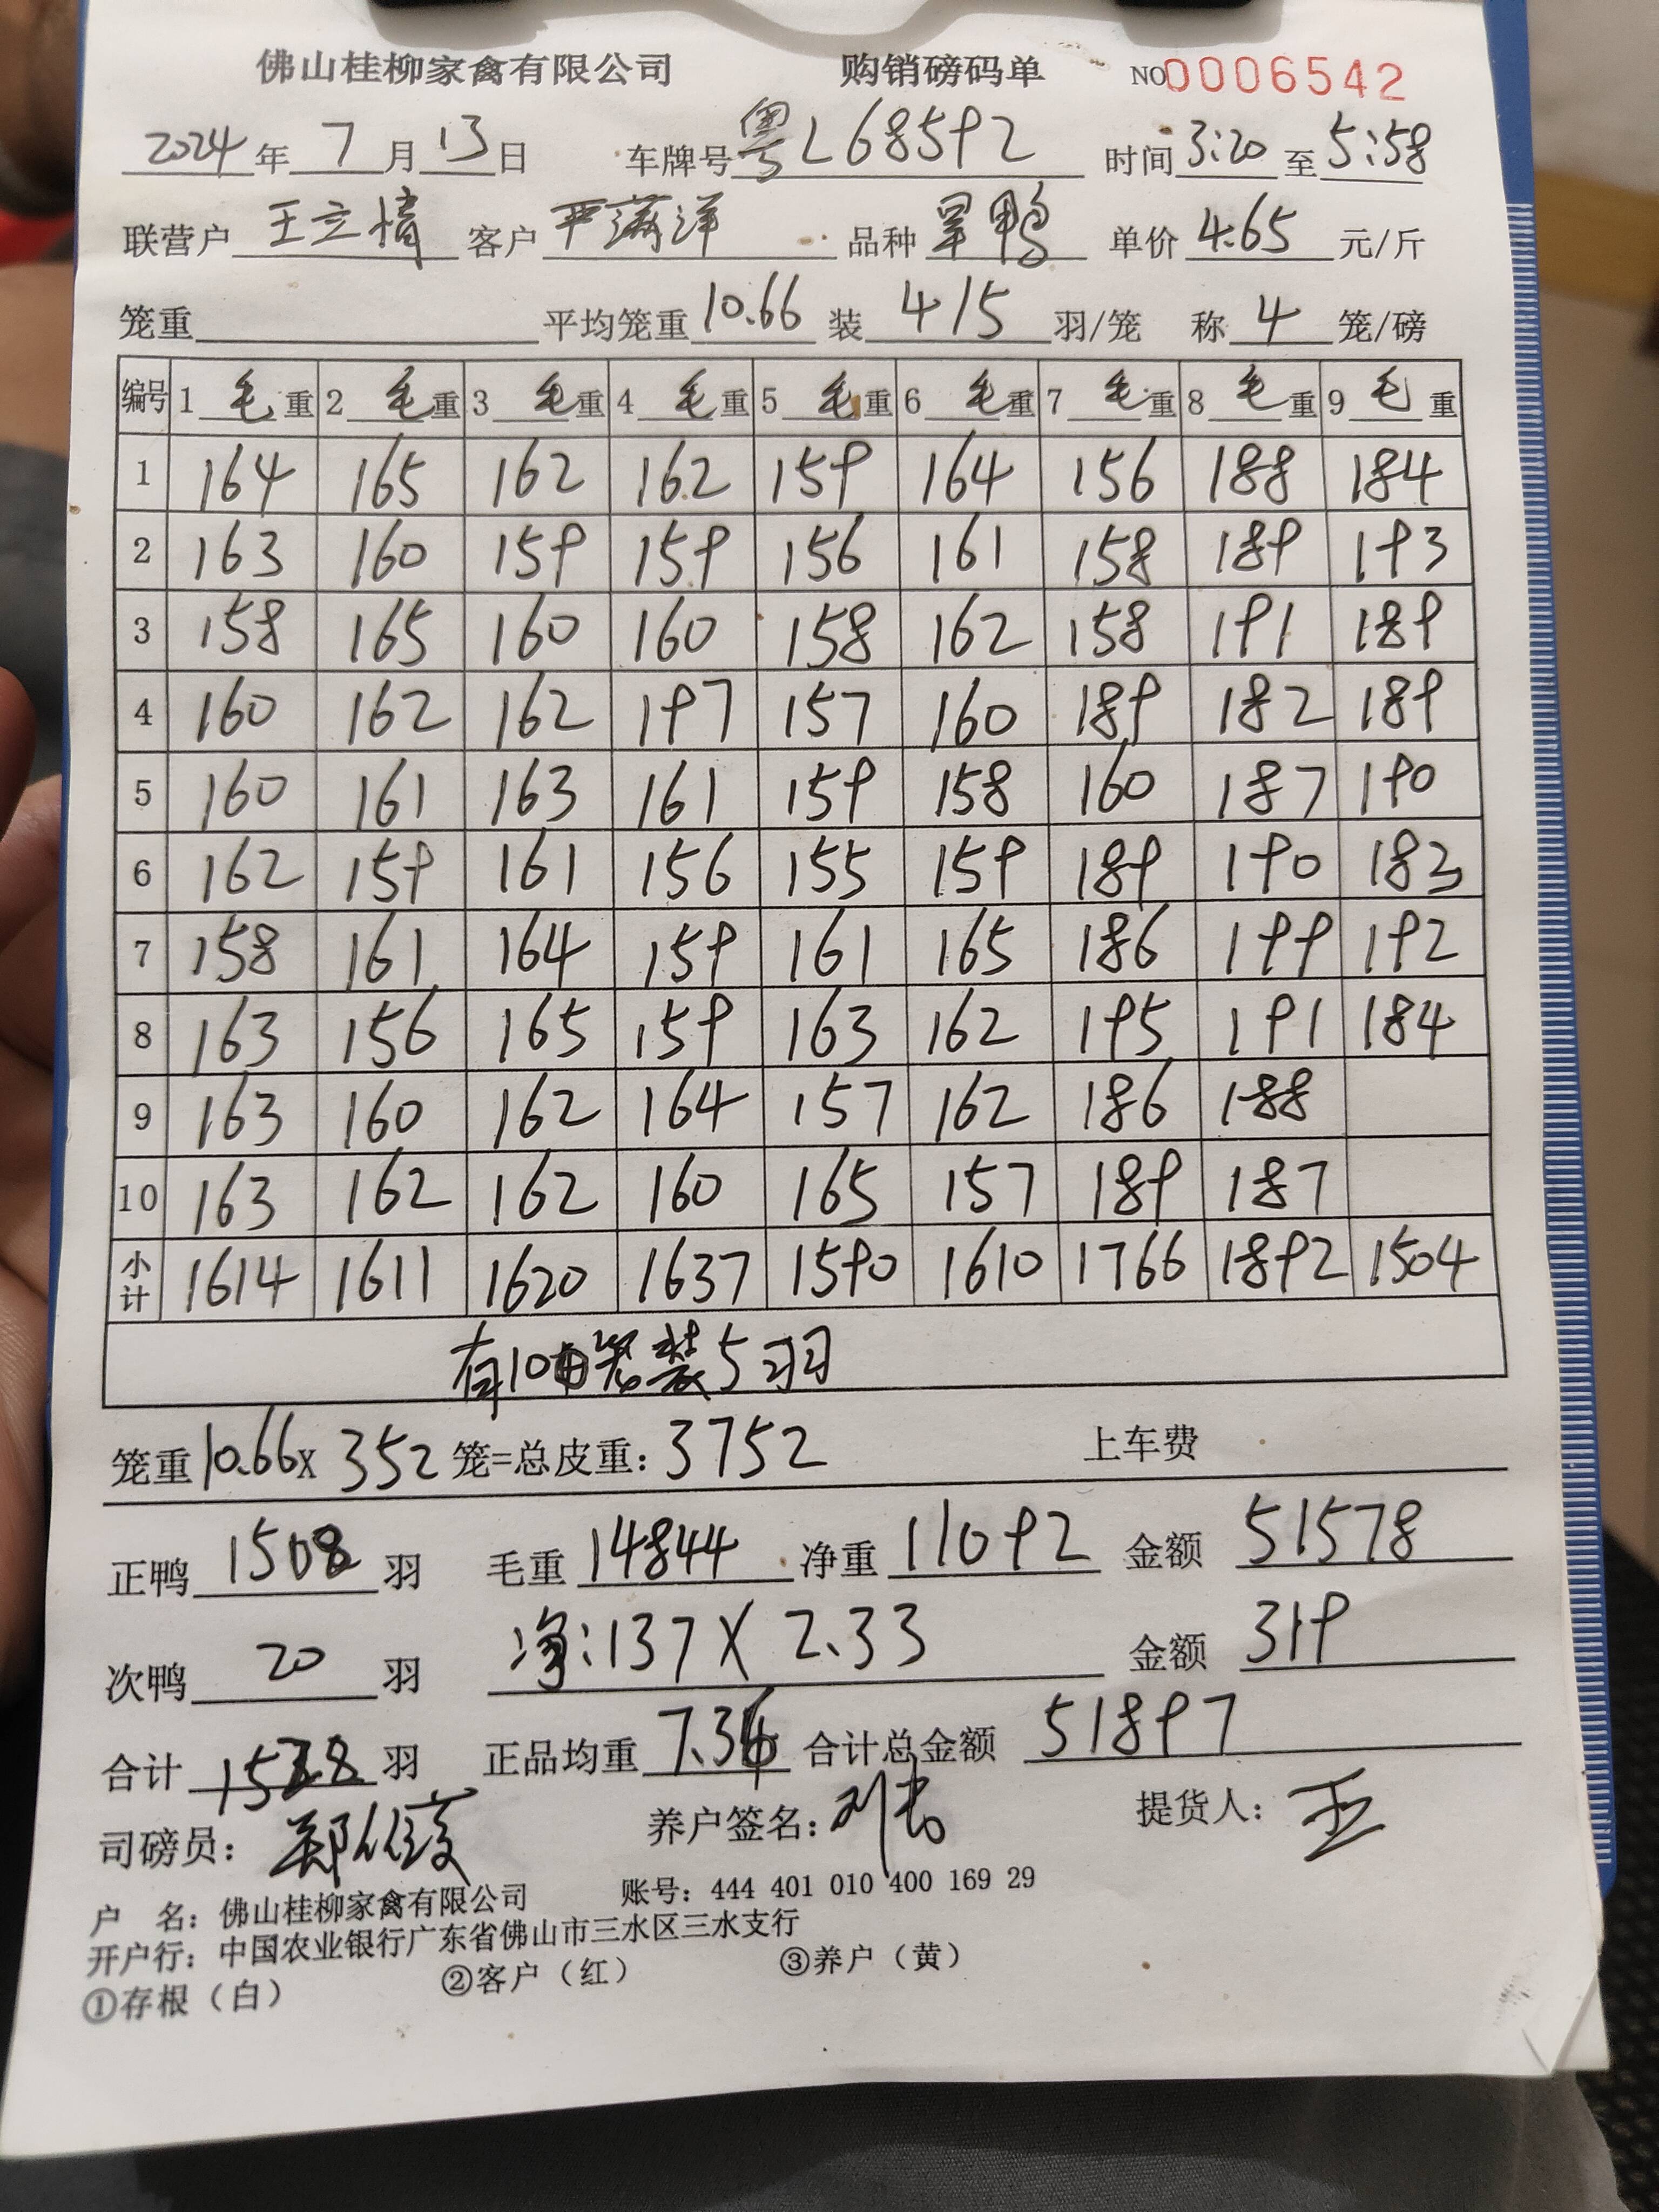 佛山桂柳家禽有限公司 购销磅码单 NO0006542
2024年7月13日 车牌号粤L68592 时间3:20至5:58
联营户王立情 客户严满洋 品种旱鸭 单价4.65元/斤
笼重 平均笼重10.66 装4/5羽/笼 称4笼/磅
编号 1毛重 2毛重 3毛重 4毛重 5毛重 6毛重 7毛重 8毛重 9毛重
1 164 165 162 162 159 164 156 188 184
2 163 160 159 159 156 161 158 189 193
3 158 165 160 160 158 162 158 191 189
4 160 162 162 197 157 160 189 182 189
5 160 161 163 161 159 158 160 187 190
6 162 159 161 156 155 159 189 190 183
7 158 161 164 159 161 165 186 199 192
8 163 156 165 159 163 162 195 191 184
9 163 160 162 164 157 162 186 188
10 163 162 162 160 165 157 189 187
小计 1614 1611 1620 1637 1590 1610 1766 1892 1504
有10笼装5羽
笼重10.66x352笼=总皮重:3752 上车费
正鸭1508羽 毛重14844 净重11092 金额51578
次鸭20羽 净:137X2.33 金额319
合计1528羽 正品均重7.36 合计总金额51897
司磅员: 养户签名: 提货人:王
户 名:佛山桂柳家禽有限公司 账号:444 401 010 400 169 29
开户行:中国农业银行广东省佛山市三水区三水支行
①存根(白) ②客户(红) ③养户(黄)